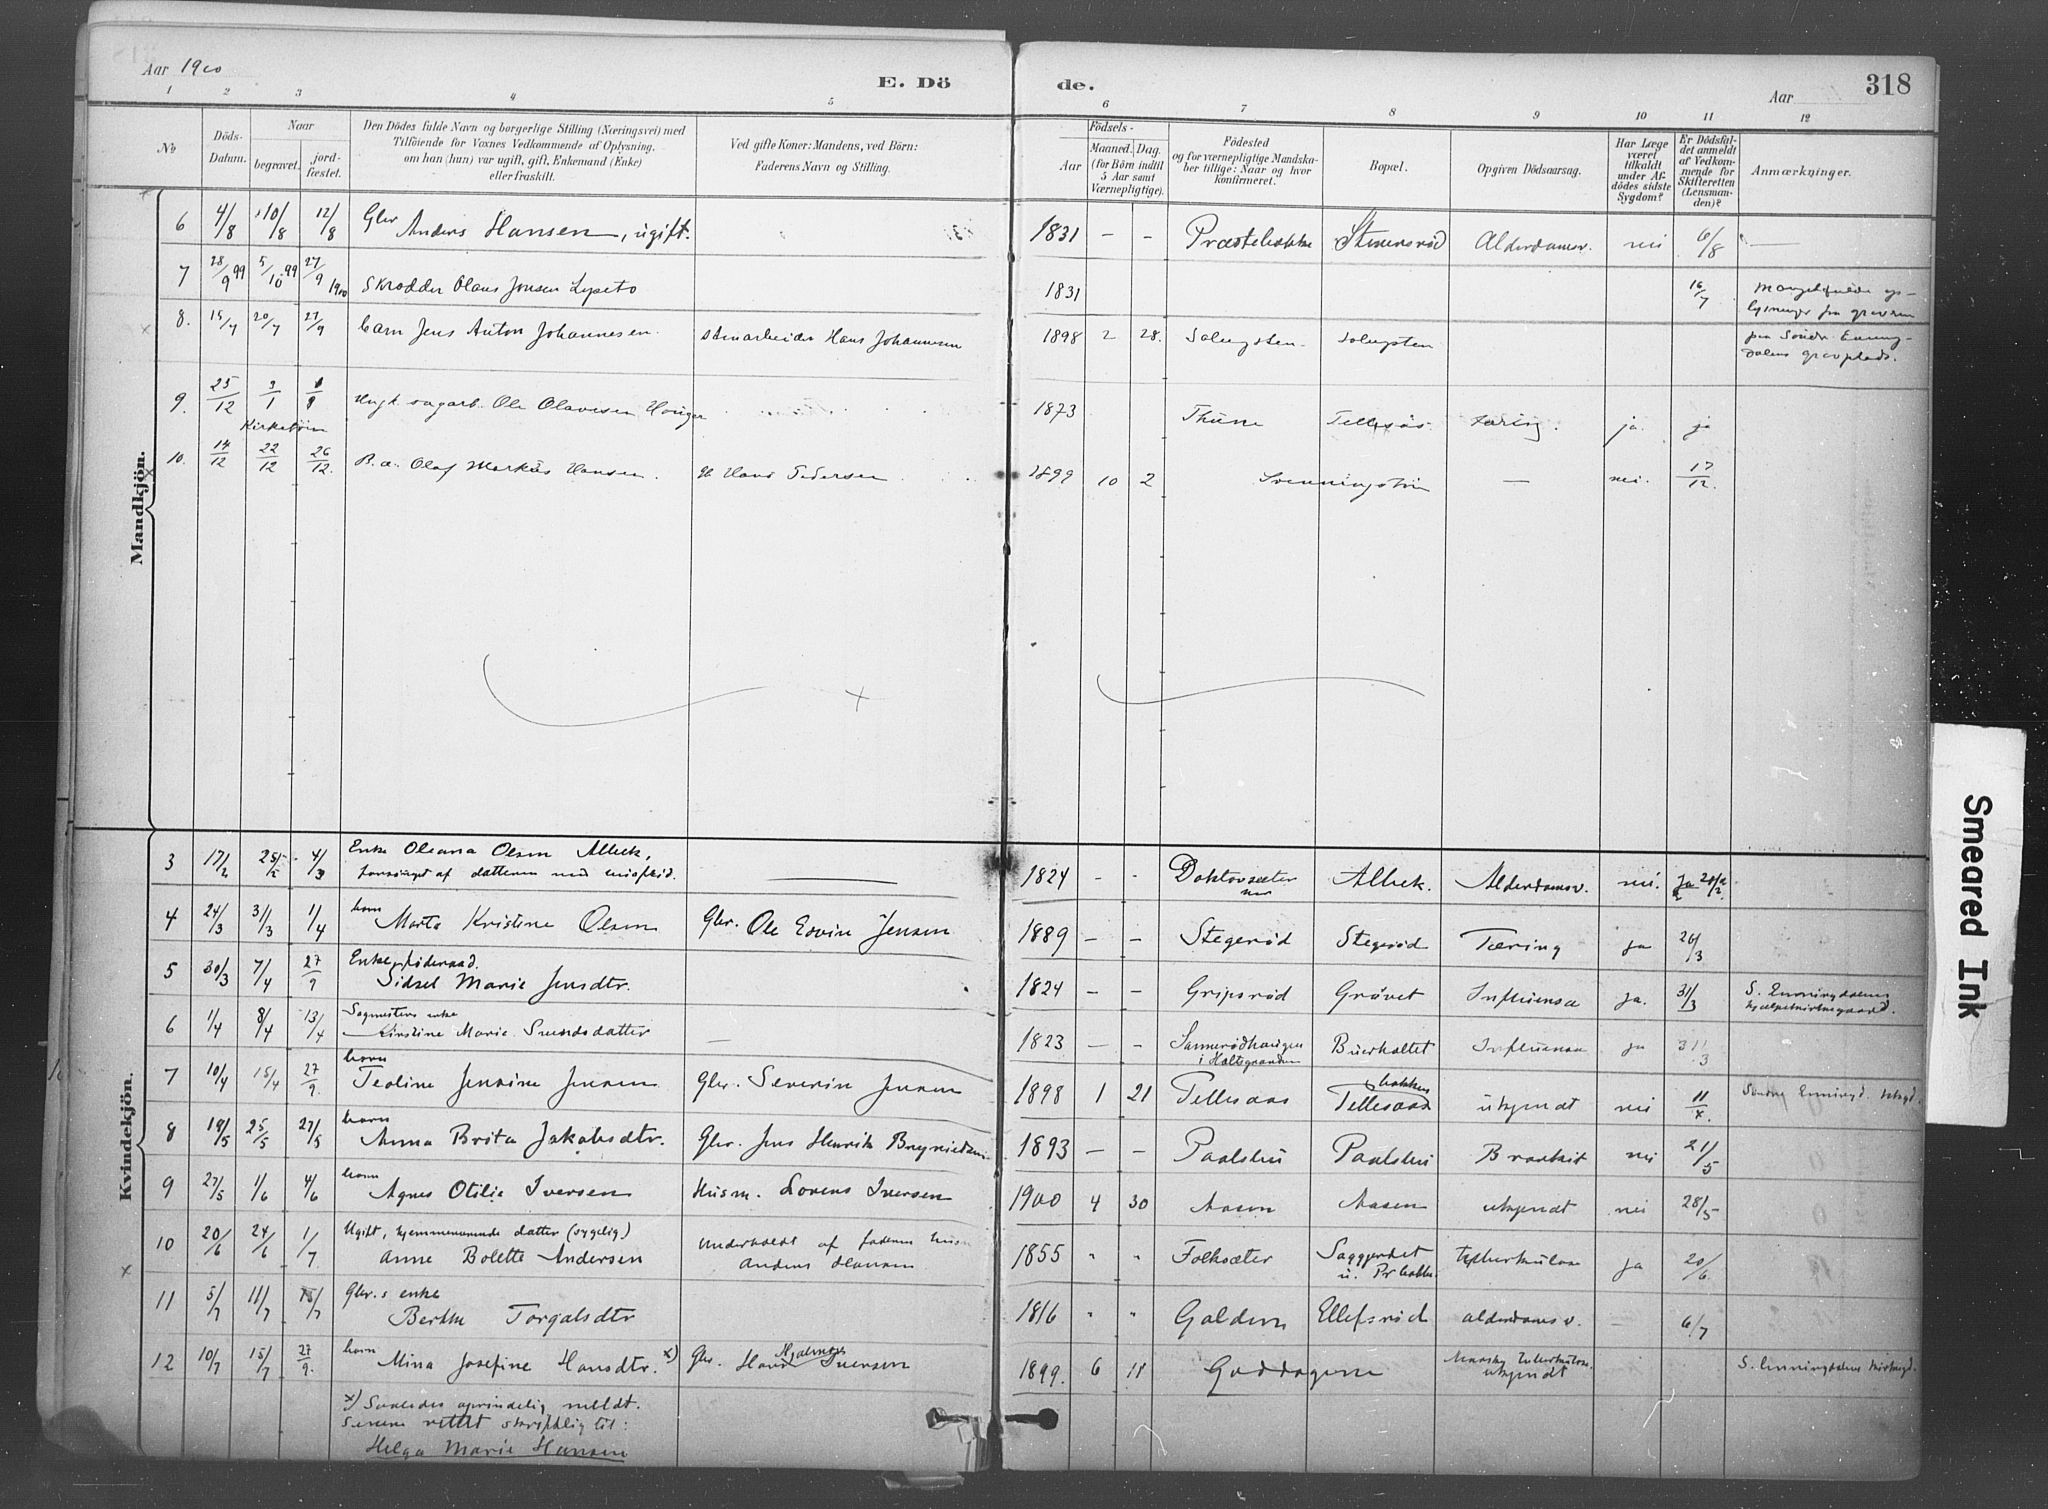 Aar 1900
E. Dö
de.
Aar
318
1 2 3 4 5 6 7 8 9 10 11 12
No
Döds-Datum.
Naar
begravet.
jord-fæstet.
Den Dödes fulde Navn og borgerlige Stilling (Næringsvei) med
Tilföiende for Voxnes Vedkommende af Oplysning,
om han (hun) var ugift, gift, Enkemand (Enke)
eller fraskilt.
Ved gifte Koner: Mandens, ved Börn:
Faderens Navn og Stilling.
Födsels-
Aar
Maaned. Dag.
(for Börn indtil
5 Aar samt
Værnepligtige).
Födested
og for værnepligtige Mandska-
ber tillige: Naar og hvor
konfirmeret.
Bopæl.
Opgiven Dödsaarsag.
Har Læge
været
tilkaldt
under Af-
dödes sidste
Sygdom?
Er Dödsfal-
det anmeldt
af Vedkom-
mende for
Skifteretten
(Lensman-
den)?
Anmærkninger.
Mandkjön.
6 4/8 10/8 12/8 Gbr Anders Hansen, ugift. 1831 — — Præstebakke Stenersröd Alderdomsv. nei 6/8 —
7 28/9 99 5/10 99 27/9 1900 Skrædder Olaus Jensen 1831 16/7 Mangelfulde op-
lysninger fra
8. 15/7 20/7 27/9 barn Jens Anton Johannesen. Stenarbeider Hans Johannesen 1898 2 28. paa Söndr. Enning-
dalens gravplads.
9. 25/12 3/1 Ungk. sagarb. Ole Olavesen 1873 Thune Tæring. ja. ja
Kirketöin
10. 14/12 22/12 26/12. B. a. Olaf Markus Hansen. Hans Pedersen 1899 10 2 — nei. 17/12.
Kvindekjön.
3 17/2 25/2 4/3 Enke Oleana Olsen Albæk,
forsörget af datteren — 1824 - - Albæk. Alderdomsv. nei. Ja 20/2
4 24/3 31/3 1/4 barn Marta Kristine Olsen Gbr. Ole Edvin Jensen 1889 — — Stegeröd Stegeröd Tæring ja 26/3
5 30/3 7/4 27/9 Enke, föderaad.
Sidsel Marie Jensdtr. 1824 — — Gripsröd Grövet Influensa ja. 31/3 S. Enningdalens
6 1/4 8/4 13/4 enke
Kirstine Marie Svendsdatter — 1823 — — Influensa ja 31/3
7 10/4 15/4 27/9. barn Teoline Jensine Jensen Gbr. Severin Jensen 1898 1 21 Tellesaas Tellesaas bakken ukjendt nei 11/4. Söndre Enningd.
8 19/5 25/5 27/5 barn Anna Brita Jakobsdtr. Gbr. Jens Henrik 1893 — — Paalshu Paalshu nei 21/5
9 27/5 1/6 4/6 barn Agnes Otilie Iversen Husm. Lorens Iversen 1900 4 30 Aasen Aasen ukjendt nei 28/5
10 20/6 24/6 1/7 Ugift, hjemmeværende datter (sygelig)
Anne Bolette Andersen Underholdt af faderen
Anders Hansen 1855 " " Folksæter Tuberkulose ja 20/6.
11 5/7 11/7 15/7 Gbr.s enke
Berthe Torgalsdtr 1816 " " Ellefsröd alderdomsv. — 6/7
12 10/7 15/7 27/9. barn Mina Josefine Hansdtr. x) Gbr. Hans Hjalmar Iversen 1899. 6 11 ukjendt S. Enningdalens
x) Saaledes oprindelig meldt.
Senere rettet skriftlig til:
Helga Marie Hansen
Smeared Ink